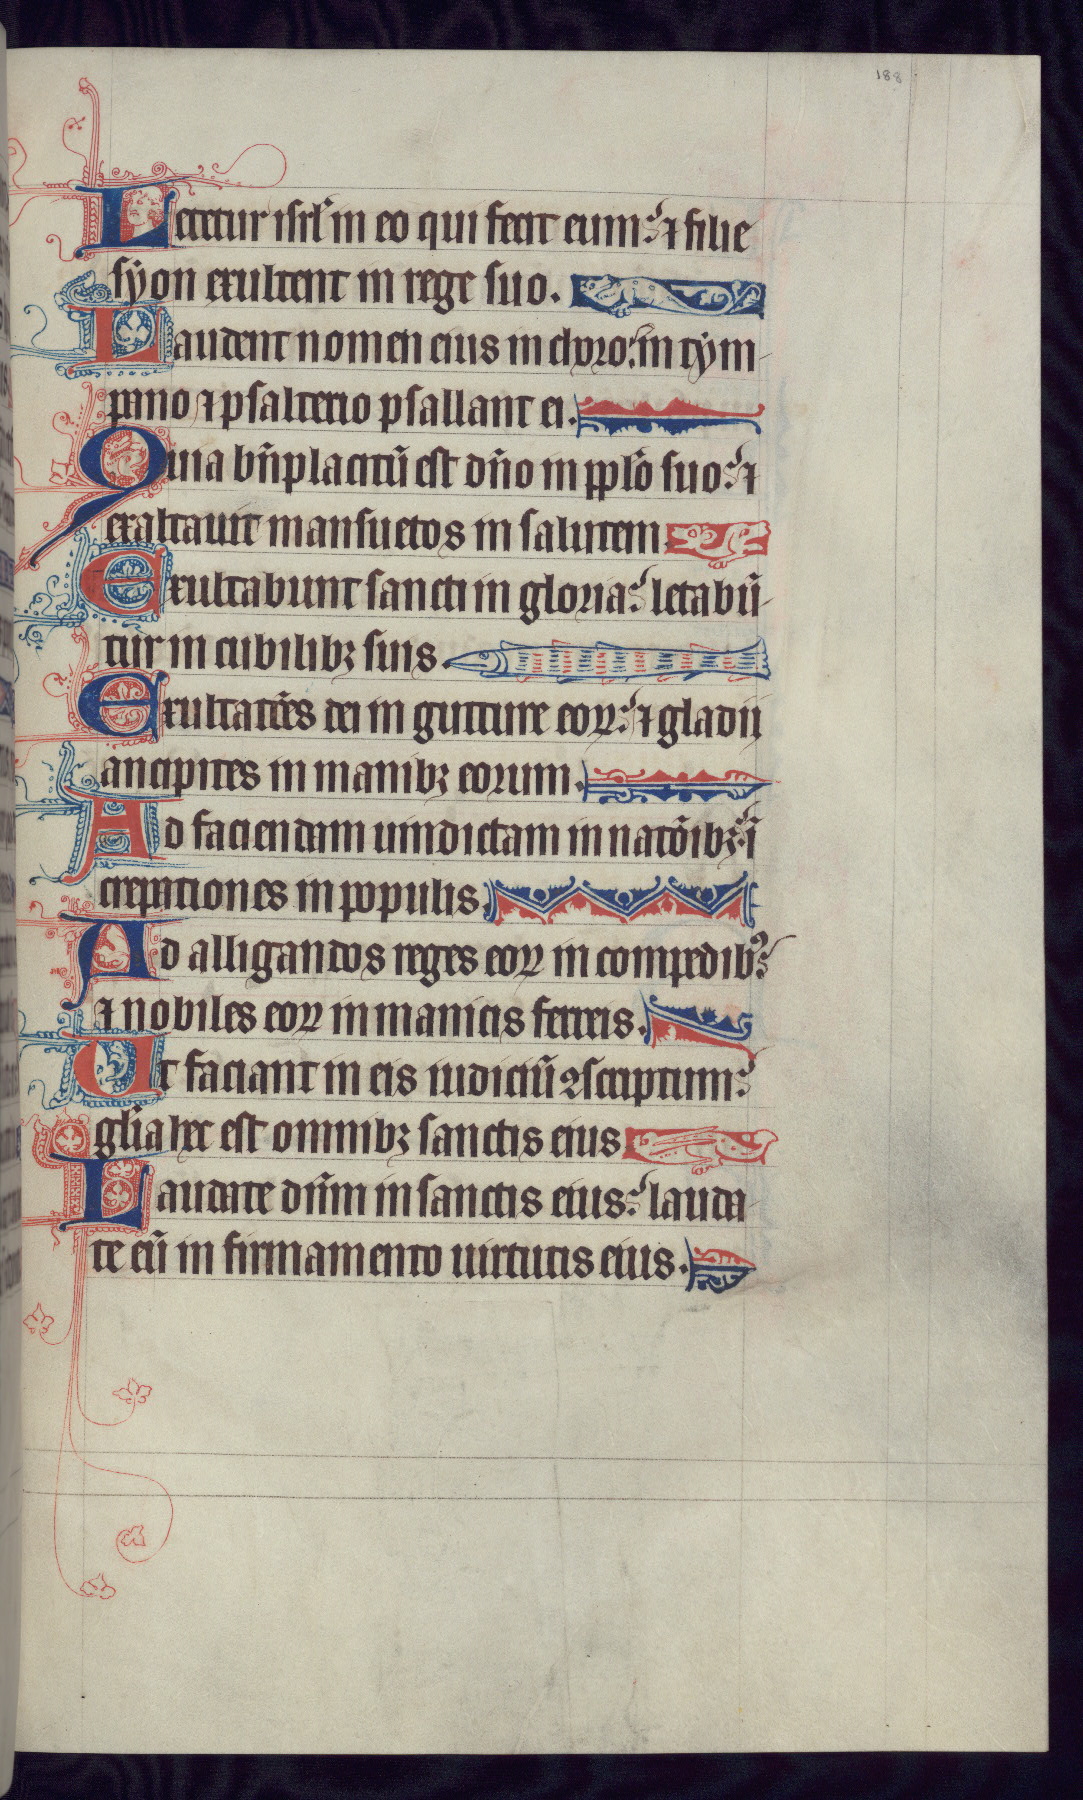 188
Letetur isrl̃ in eo qui fecit eum: ⁊ filie
syon exultent in rege suo.
Laudent nomen eius in choro: in tym-
pano ⁊ psalterio psallant ei.
Quia bñplacitũ est dño in ppl̃o suo: ⁊
exaltauit mansuetos in salutem
Exultabunt sancti in gloria: letabũ-
tur in cubilibꝫ suis.
Exultatões dei in gutture eoꝝ: ⁊ gladii
ancipites in manibꝫ eorum.
Ad faciendam uindictam in natõibꝫ: ĩ
crepationes in populis.
Ad alligandos reges eoꝝ in compedibꝰ:
⁊ nobiles eoꝝ in manicis ferreis.
Ut faciant in eis iudiciũ ꝯscriptum:
gl̃ia hec est omnibꝫ sanctis eius
Laudate dñm in sanctis eius: lauda-
te eũ in firmamento uirtutis eius.